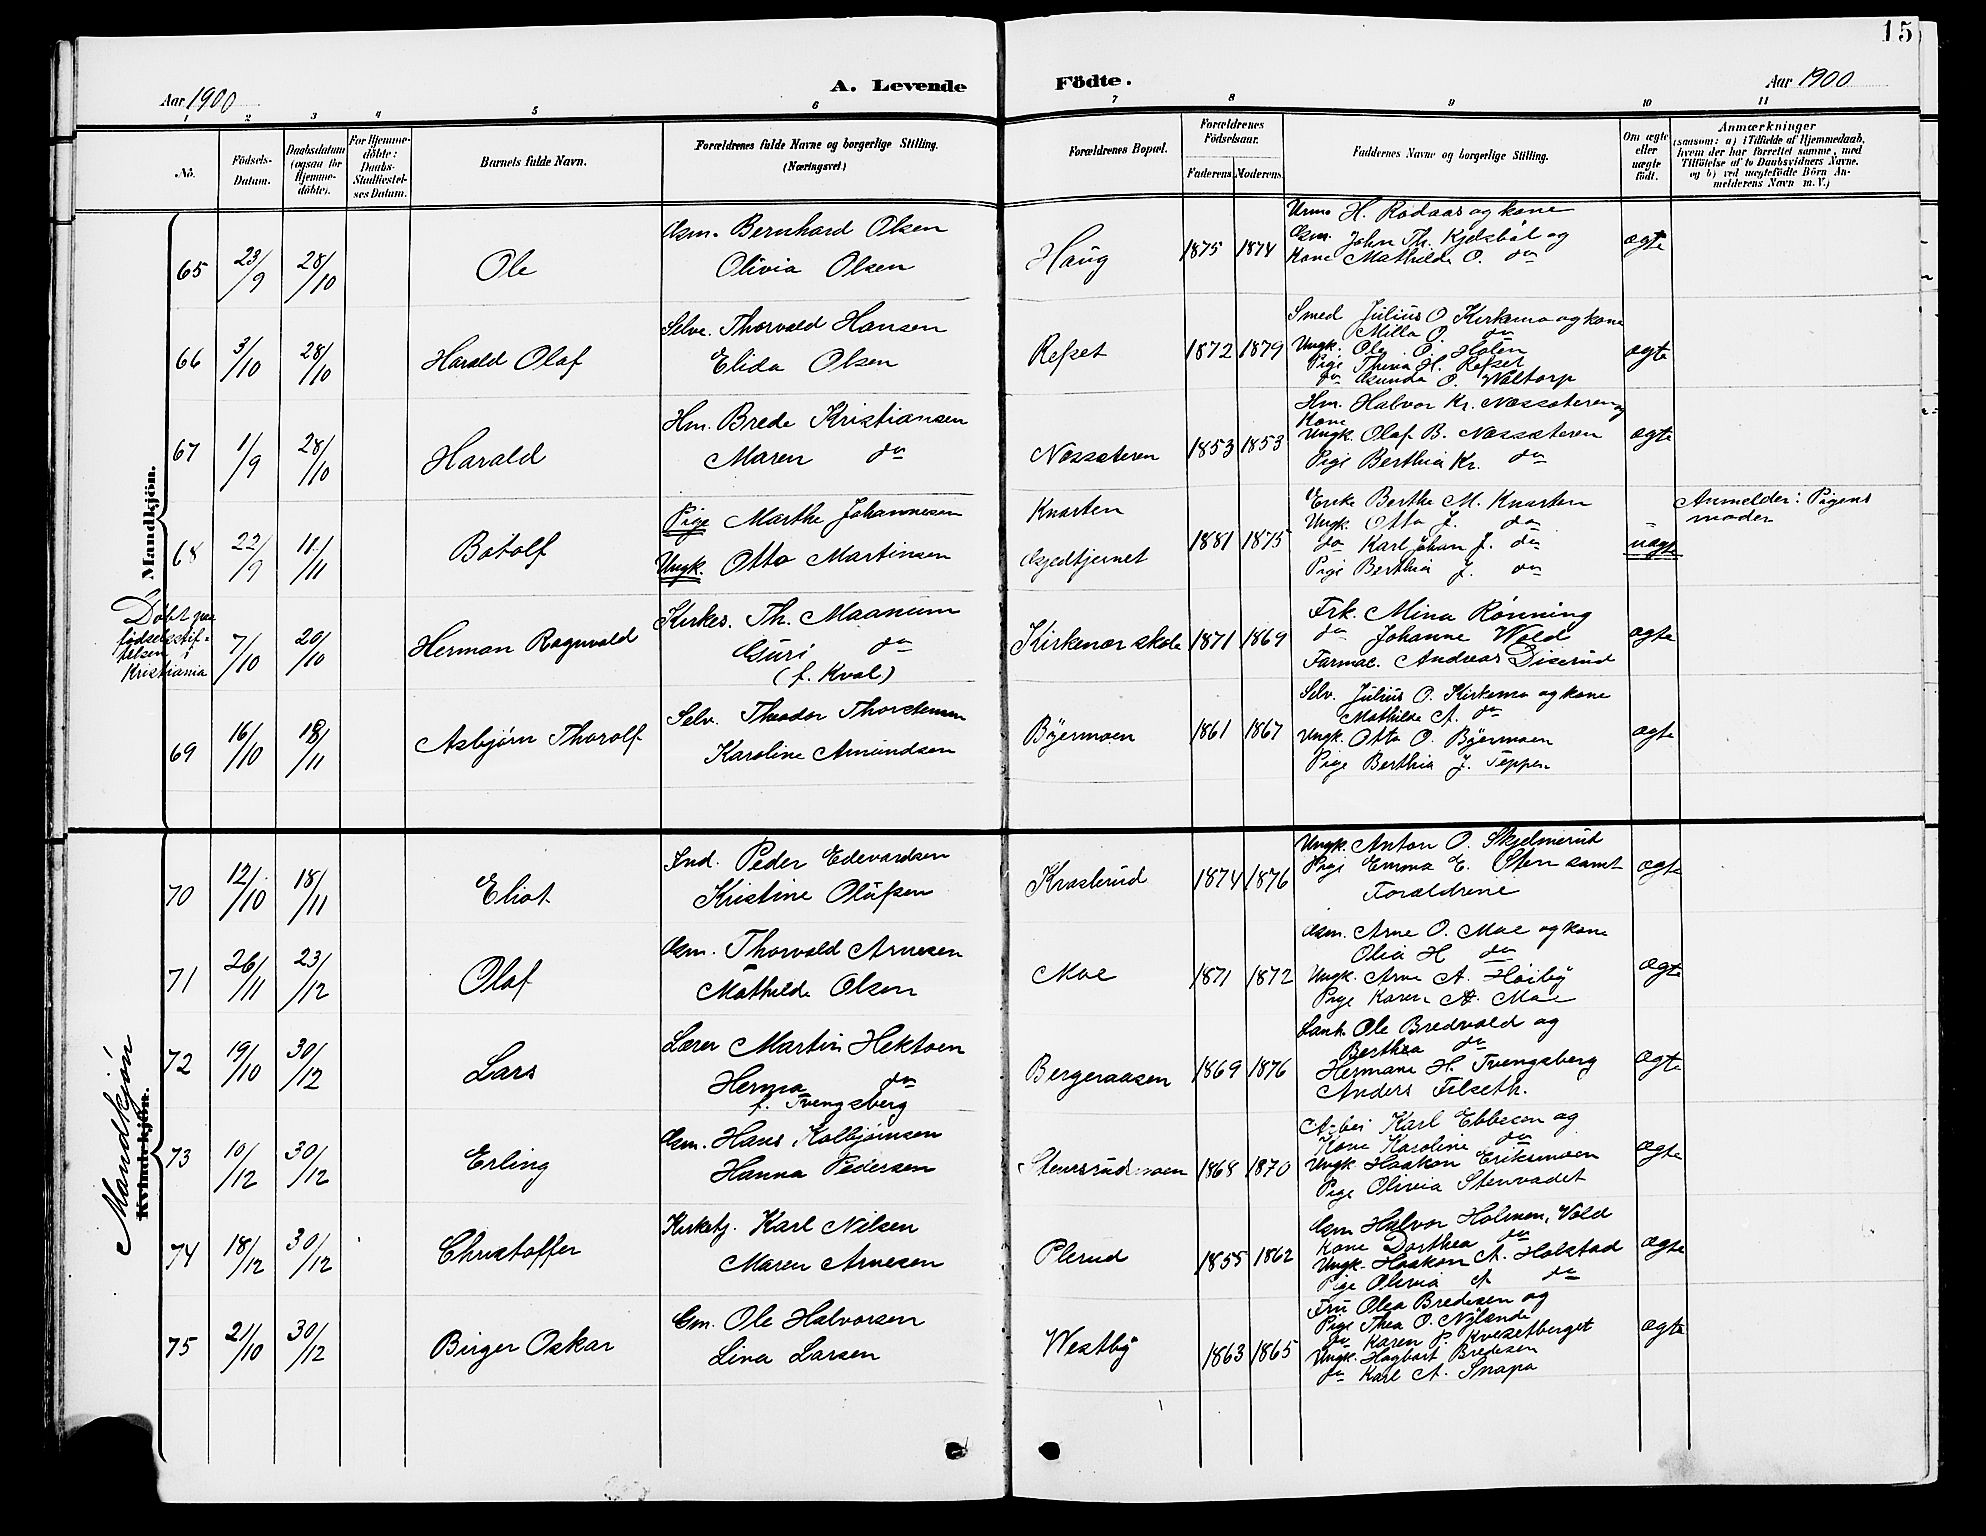 15
Aar 1900
A. Levende
Födte.
Aar 1900
1 2 3 4 5 6 7 8 9 10 11
No.
Födsels-Datum.
Daabsdatum (ogsaa for Hjemmedöbte).
For Hjemmedöbte: Daabs-Stadfæstelses Datum.
Barnets fulde Navn.
Forældrenes fulde Navne og borgerlige Stilling. (Næringsvei)
Forældrenes Bopæl.
Forældrenes Födselsaar.
Faderens Moderens
Faddernes Navne og borgerlige Stilling.
Om ægte eller uægte födt.
Anmærkninger
(saasom: a) i Tilfælde af Hjemmedaab, hvem der har forrettet samme, med Tilföielse af to Daabsvidners Navne. og b) ved uægtefödte Börn Anmelderens Navn m. V.)
Mandkjön.
65 23/9 28/10 Ole
Gsm. Bernhard Olsen
Olivia Olsen
Haug 1875 1874
Urm. H. Rødaas og kone
Gsm. John Th. Kjelsbøl og
Kone Mathilde O. do
ægte
66 3/10 28/10 Harald Olaf
Selve. Thorvald Hansen
Elida Olsen
Refset 1872 1879
Smed Julius O. Kirkemo og kone
Milla O. do
Ungk. Ole O. Holen
Pige Thea H. Refset
do Gunda O. Waltorp
ægte
67 1/9 28/10 Harald
Hm. Brede Kristiansen
Maren do
Næssæteren 1853 1853
Hm. Halvor Kr. Næssæteren og
Kone
Ungk. Olaf B. Næssæteren
Pige Berthia Kr. do
ægte
68 22/9 11/11 Botolf
Pige Marthe Johannesen
Ungk. Otto Martinsen
Knasten
Gjedtjernet
1881 1875
Enke Berthe M. Knasten
Ungk. Otto J. do
do Karl Johan J. do
Pige Berthia J. do
uægte
Anmelder: Pigens
moder
Döbt paa
fødselsstif-
telsen i
Kristiania
7/10 20/10 Herman Ragnvald
Kirkes. Th. Maanum
Guri do
(f. Kval)
Kirkenær skole 1871 1869
Frk. Mina Rønning
do Johanne Wold
Farmac. Andreas Diserud
ægte
69 16/10 18/11 Asbjørn Thorolf
Selv. Theodor Thorstensen
Karoline Amundsen
Bøiermoen 1861 1867
Selv. Julius O. Kirkemo og kone
Mathilde A. do
Ungk. Otto O. Bøiermoen
Pige Berthia J. Teppen
ægte
Mandkjøn
Kvindekjön.
70 12/10 18/11 Eliot
Ind. Peder Edevardsen
Kristine Olufsen
Krasterud 1874 1876
Ungk. Anton O. Skjelmerud
Pige Emma E. Sten samt
Forældrene
ægte
71 26/11 23/12 Olaf
Gsm. Thorvald Arnesen
Mathilde Olsen
Moe 1871 1872
Gsm. Arne O. Moe og kone
Olia H do
Ungk. Arne A. Høiby
Pige Karen A. Moe
ægte
72 19/10 30/12 Lars
Lærer Martin Hektoen
Herma do
f. Tvengsberg
Bergeraasen 1869 1876
Lank. Ole Bredvold og
Berthea do
Hermane H. Tvengsberg
Anders Filseth.
ægte
73 10/12 30/12 Erling
Gsm. Hans Kolbjørnsen
Hanna Pedersen
Stensrudmoen 1868 1870
Arbei Karl Ebbesen og
Kone Karoline do
Ungk. Haakon Eriksmoen
Pige Oliveia Stenvadet
ægte
74 18/12 30/12 Christoffer
Kirketj. Karl Nilsen
Maren Arnesen
Plerud 1855 1862
Gsm Halvor Holmen, Vold
Kone Dorthea do
Ungk. Haakon A. Holstad
Pige Olivia A do
ægte
75 21/10 30/12 Birger Oskar
Gm. Ole Halvorsen
Lina Larsen
Westby 1863 1865
Fru Olea Bredesen og
Pige Thea O. Nylænde
do Karen P. Kvesetberget
Ungk. Hagbart Bredesen
do Karl A. Snapa
ægte